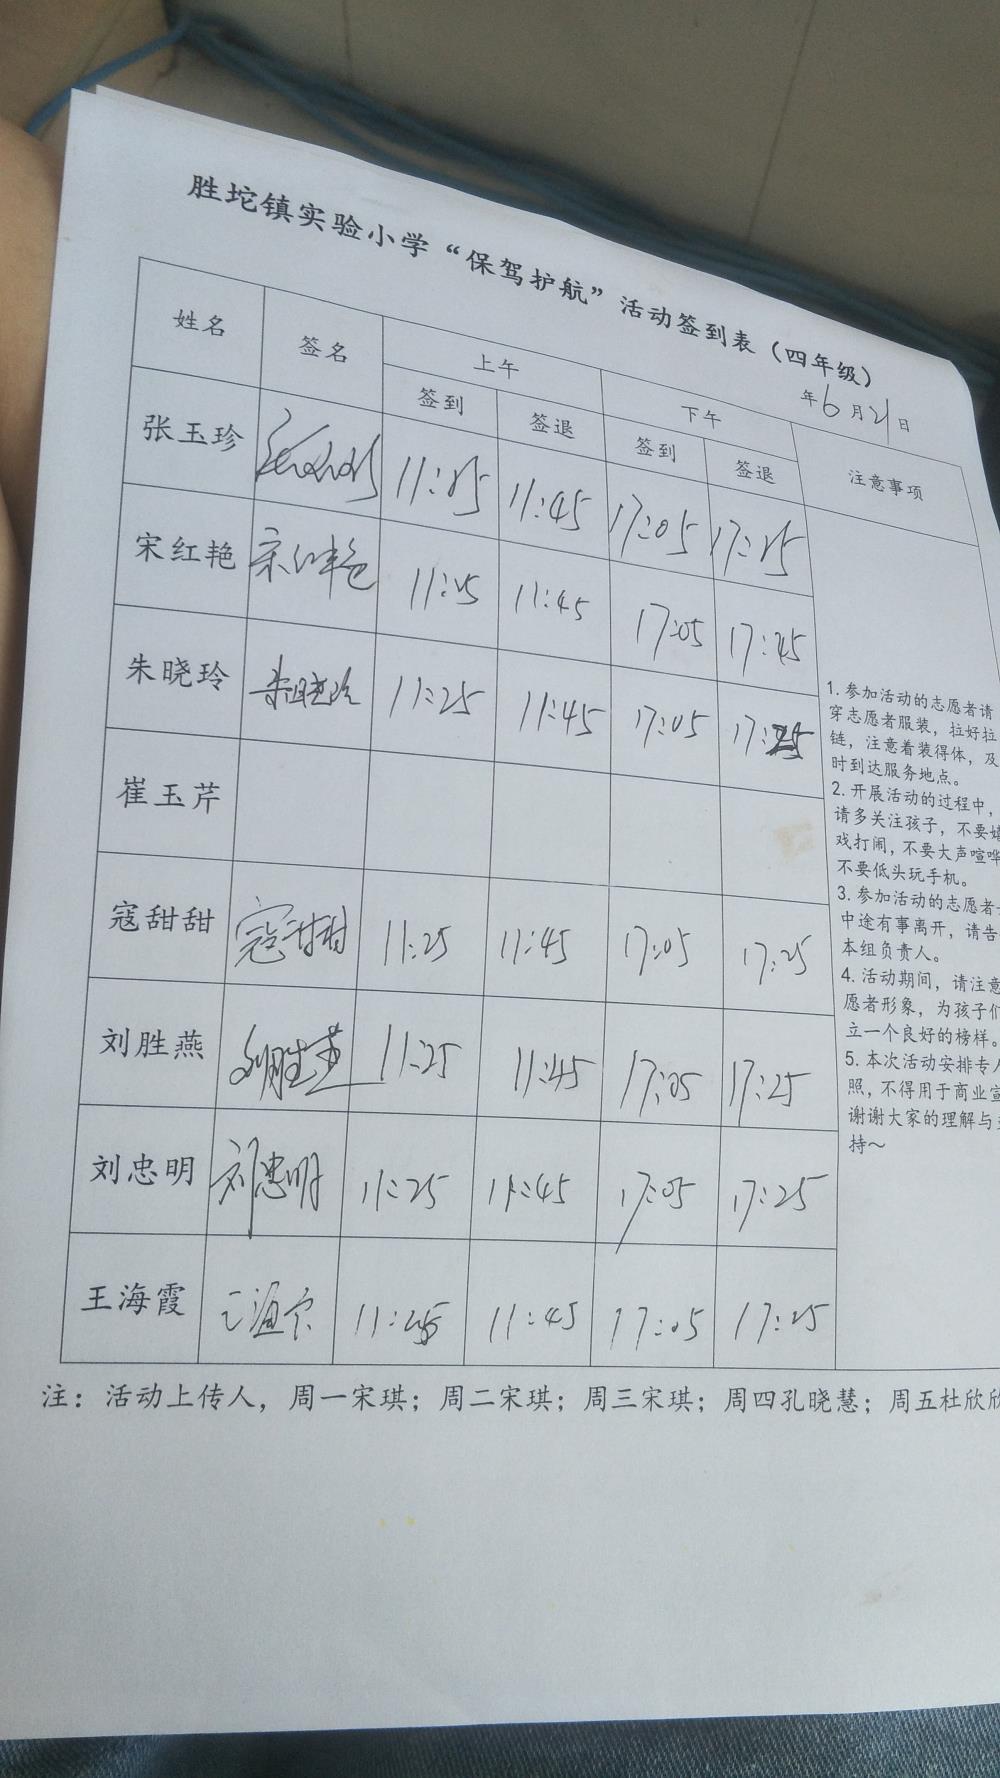 胜坨镇实验小学“保驾护航”活动签到表（四年级）
年6月21日
姓名 签名 上午 下午 注意事项
签到 签退 签到 签退
张玉珍 11:25 11:45 17:05 17:25
宋红艳 宋红艳 11:25 11:45 17:05 17:25
朱晓玲 朱晓玲 11:25 11:45 17:05 17:25
崔玉芹
寇甜甜 寇甜甜 11:25 11:45 17:05 17:25
刘胜燕 刘胜燕 11:25 11:45 17:05 17:25
刘忠明 刘忠明 11:25 11:45 17:05 17:25
王海霞 11:25 11:45 17:05 17:25
1.参加活动的志愿者请
穿志愿者服装，拉好拉
链，注意着装得体，及
时到达服务地点。
2.开展活动的过程中，
请多关注孩子，不要嬉
戏打闹，不要大声喧哗
不要低头玩手机。
3.参加活动的志愿者
中途有事离开，请告
本组负责人。
4.活动期间，请注意
愿者形象，为孩子们
立一个良好的榜样。
5.本次活动安排专人
照，不得用于商业宣
谢谢大家的理解与
持～
注：活动上传人，周一宋琪；周二宋琪；周三宋琪；周四孔晓慧；周五杜欣欣